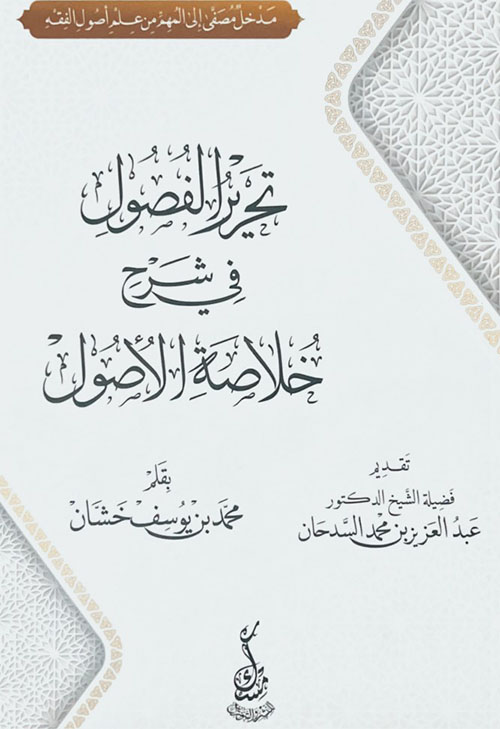 مَدْخَلٌ مُصَفَّى إِلَى المُهِمِّ مِنْ عِلْمِ أُصُولِ الفِقْهِ
تَحْرِيرُ الفُصُولِ
فِي شَرْحِ
خُلَاصَةِ الأُصُولِ
تَقْدِيم
فَضِيلَة الشَّيْخ الدكتور
عَبْدُ العَزِيزِ بن مُحَمَّد السَّدحَان
بِقَلَم
مُحَمَّد بْن يُوسُف خَشَّان